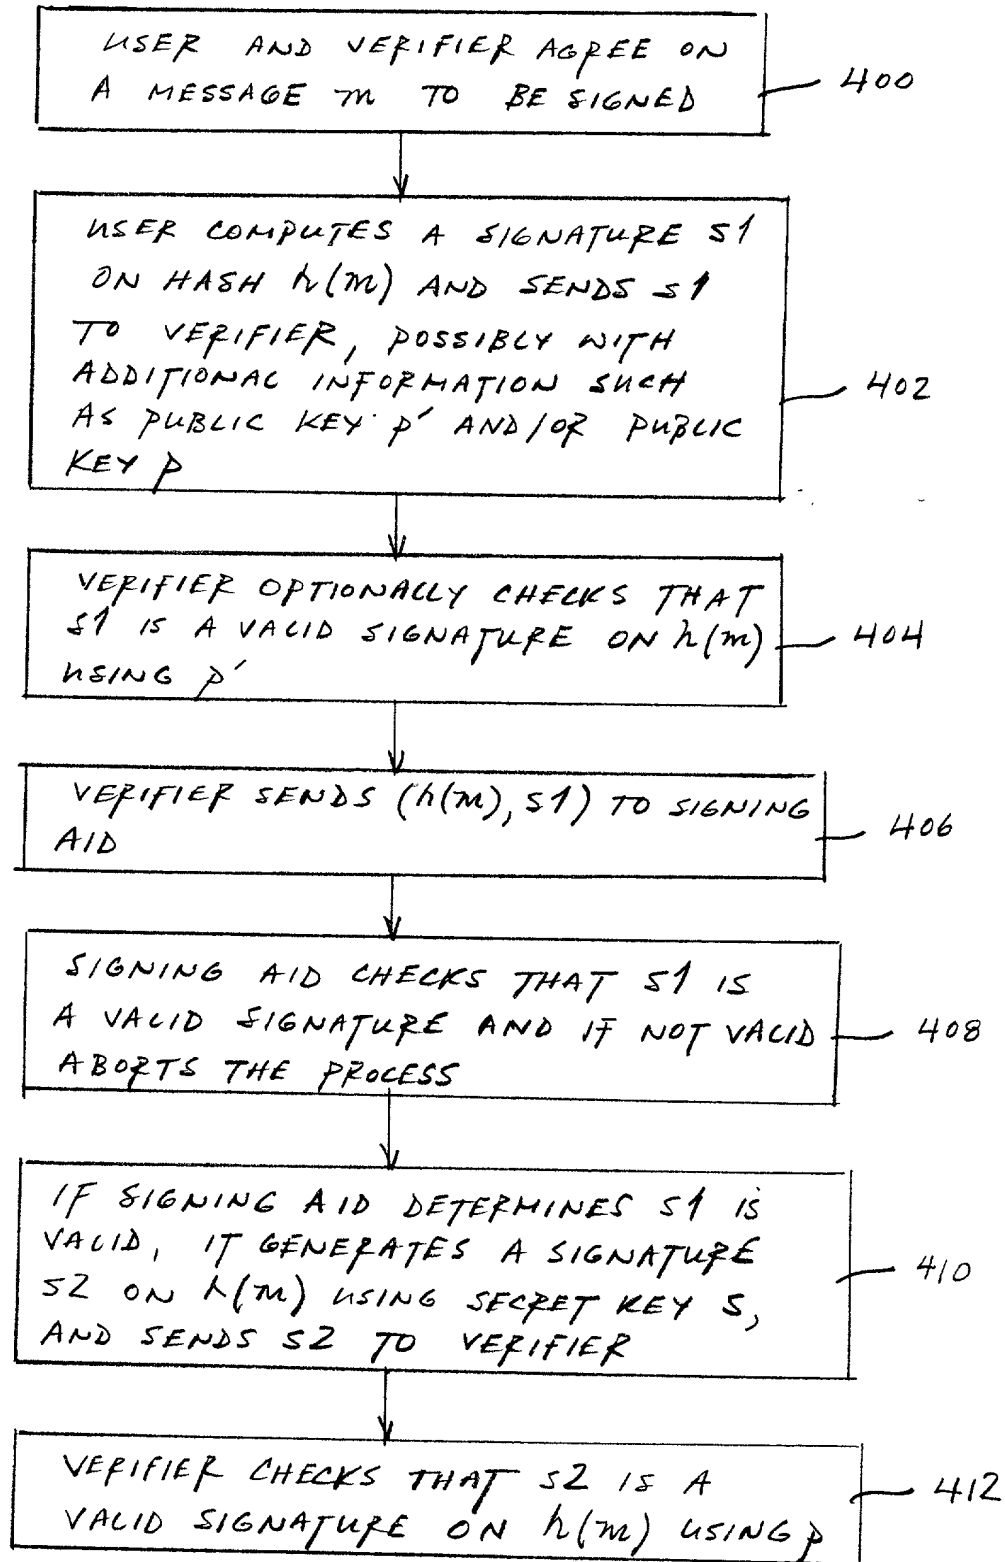 USER AND VERIFIER AGREE ON
A MESSAGE m TO BE SIGNED
400
USER COMPUTES A SIGNATURE s1
ON HASH h(m) AND SENDS s1
TO VERIFIER, POSSIBLY WITH
ADDITIONAL INFORMATION SUCH
AS PUBLIC KEY p' AND/OR PUBLIC
KEY p
402
VERIFIER OPTIONALLY CHECKS THAT
s1 IS A VALID SIGNATURE ON h(m)
USING p'
404
VERIFIER SENDS (h(m), s1) TO SIGNING
AID
406
SIGNING AID CHECKS THAT s1 IS
A VALID SIGNATURE AND IF NOT VALID
ABORTS THE PROCESS
408
IF SIGNING AID DETERMINES s1 IS
VALID, IT GENERATES A SIGNATURE
s2 ON h(m) USING SECRET KEY s,
AND SENDS s2 TO VERIFIER
410
VERIFIER CHECKS THAT s2 IS A
VALID SIGNATURE ON h(m) USING p
412